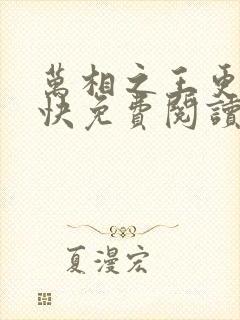 萬相之王更
快免費閱讀
夏漫宏